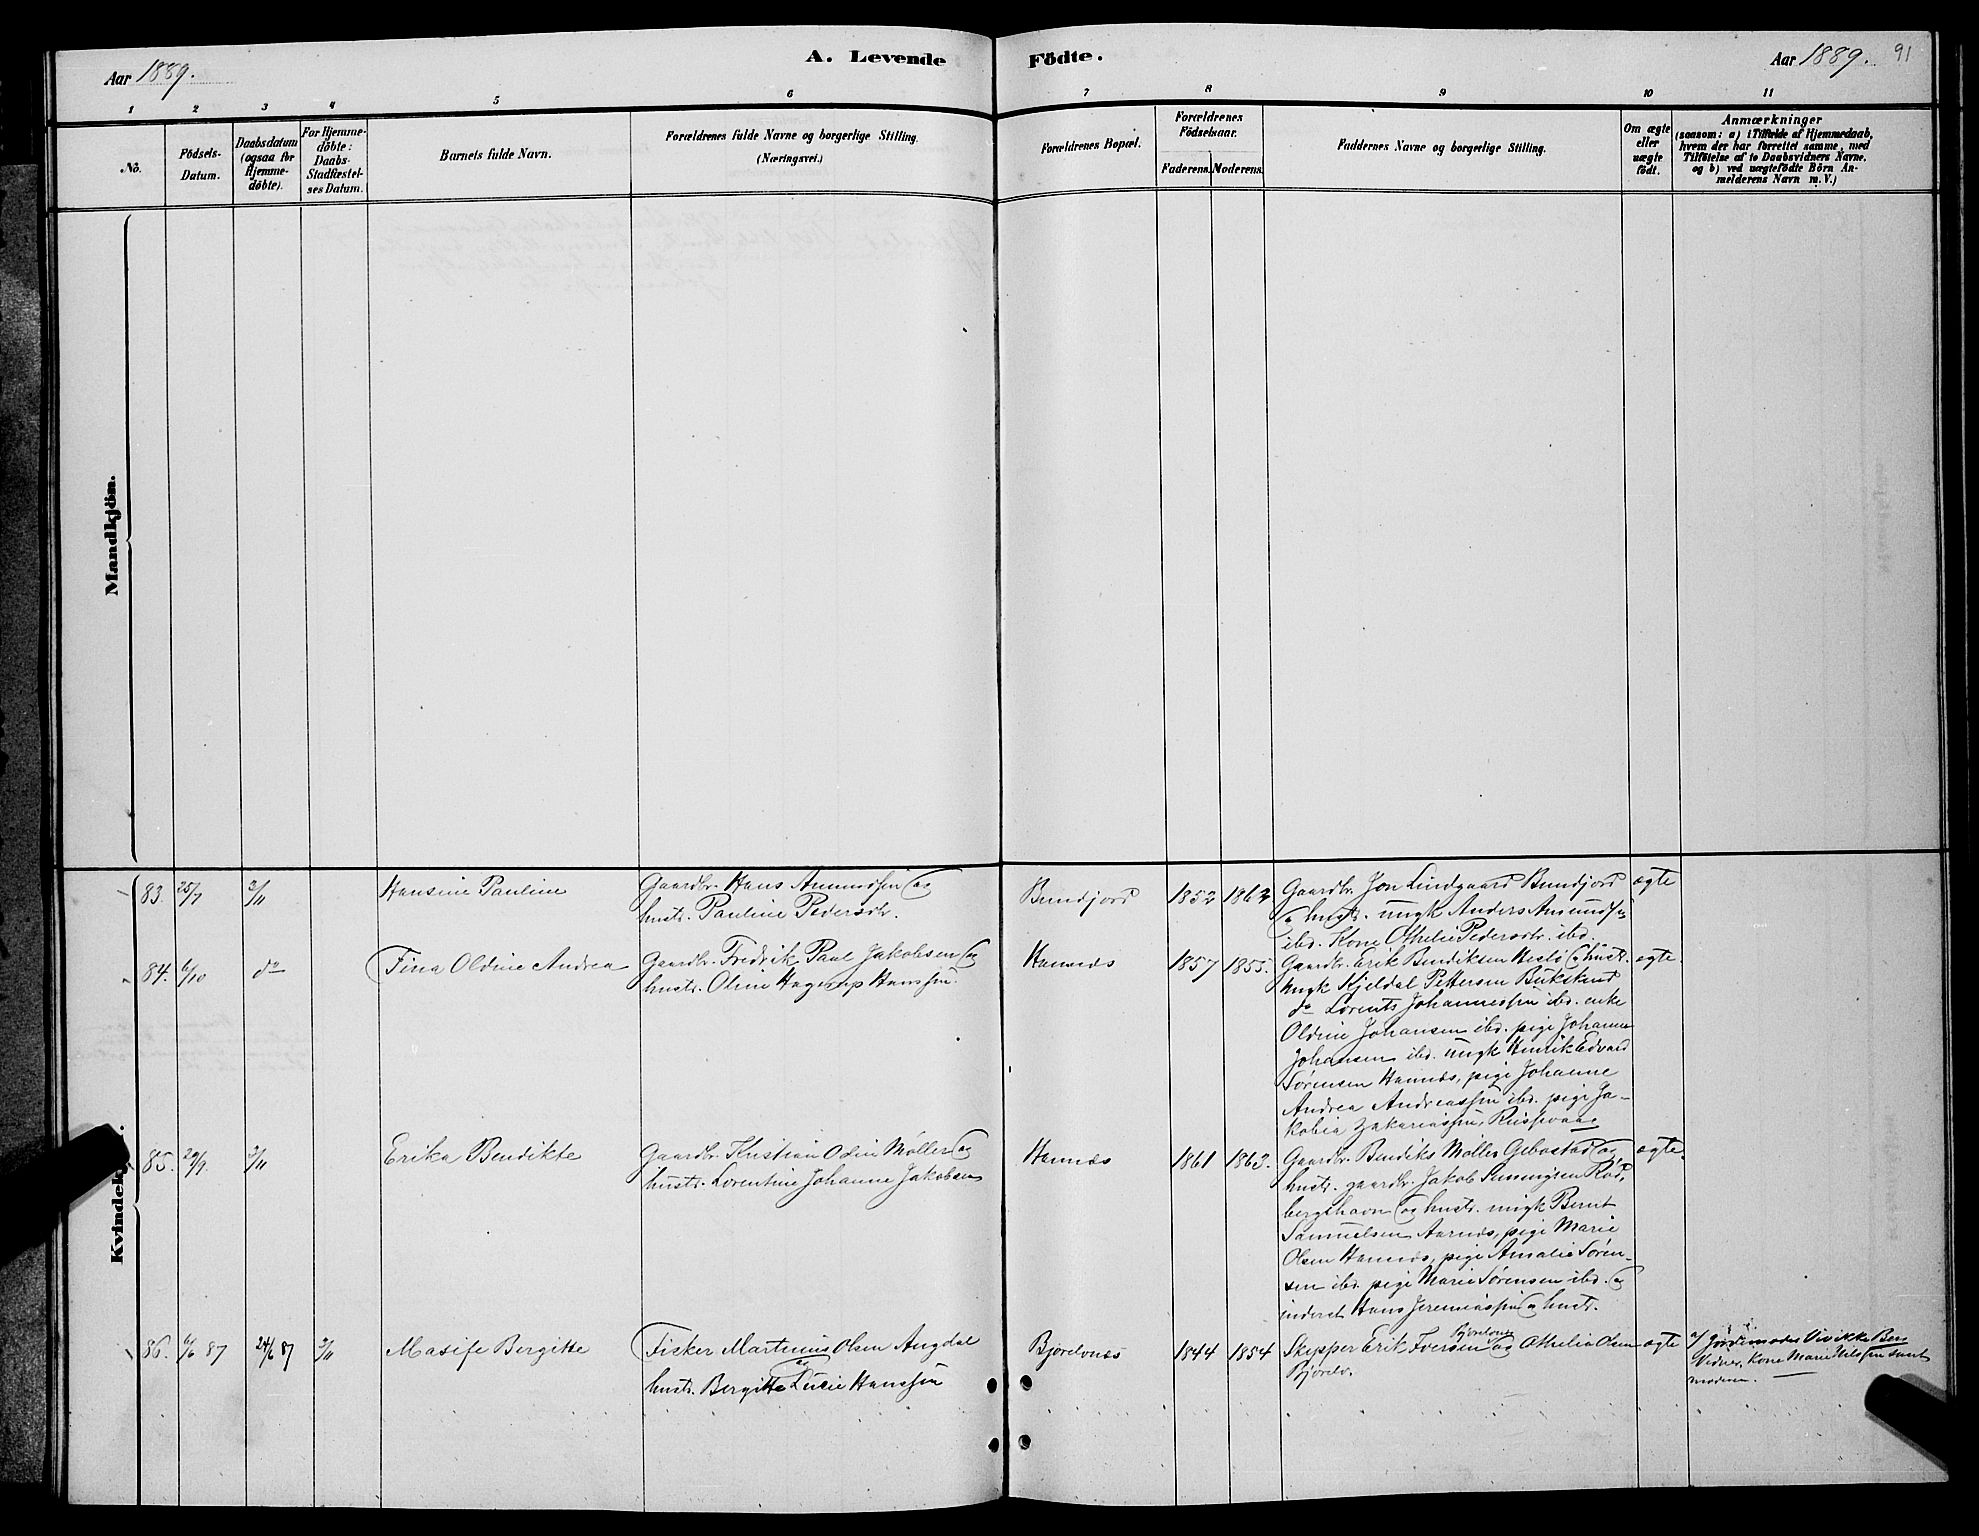 A. Levende Födte.
Aar 1889.
Aar 1889. 91
1 2 3 4 5 6 7 8 9 10 11
No.
Födsels-
Datum.
Daabsdatum
(ogsaa for
Hjemme-
döbte).
For Hjemme-
döbte:
Daabs-
Stadfæstel-
ses Datum.
Barnets fulde Navn.
Forældrenes fulde Navne og borgerlige Stilling.
(Næringsvei.)
Forældrenes Bopæl.
Forældrenes
Födselsaar.
Faderens. Moderens.
Faddernes Navne og borgerlige Stilling.
Om ægte
eller
uægte
födt.
Anmærkninger
(saasom: a) i Tilfælde af Hjemmedaab,
hvem der har forrettet samme, med
Tilföielse af to Daabsvidners Navne,
og b) ved uægtefödte Börn An-
melderens Navn m. V.)
Mandkjön.
83. 25/7 3/11 Hansine Pauline
Gaardbr. Hans Amundsen og
hustr. Pauline Pedersdtr.
Bundjord 1852 1862
Gaardbr. Jon Lindgaard Bundjord
og hustr. ungk Anders Amundsen
ibd. Kone Othelie Pedersdtr. ibd.
ægte
84. 6/10 do Fina Oldine Andrea
Gaardbr. Fredrik Paul Jakobsen og
hustr. Oline Hagerup Hanssen.
Hannæs 1857 1855.
Gaardbr. Erik Bendiksen Hesló og hustr.
ungk Kjeldal Pettersen Bukskind
do Lorents Johannessen ibd. enke
Oldine Johansen ibd. pige Johanna
Johansen ibd. ungk Henrik Edvard
Sørensen Hannæs, pige Johanne
Andrea Andreassen ibd. pige Ja-
kobia Zakariassen, Riispvaag
ægte.
Kvindek
85. 29/9. 3/11 Erika Bendikte
Gaardbr. Kristian Odin Møller og
hustr. Lorentine Johanne Jakobsen
Hannæs 1861 1863.
Gaardbr. Bendiks Møller Gebostad og
hustr. gaardbr. Jakob Rød-
bergshavn og hustr. ungk Bernt
Samuelsen Aarnæs, pige Marie
Olsen Hannæs, pige Amalie Søren-
sen ibd. pige Marie Sørensen ibd. og
inderst Hans Jeremiassen og hustr.
ægte.
86. 6/6 87 24/6 87 3/11 Masife Bergitte
Fisker Martinus Olsen Angdal
og
hustr. Bergitte Lucie Hanssen
Bjorelvnæs 1844 1854
Skipper Erik Iversen Bjorelvnes og Othelia Olsen
Bjorelv.
ægte
a/ Jordemoder Vivikke Berg
Vidner, Kone Marie Nilssen samt
moderen.